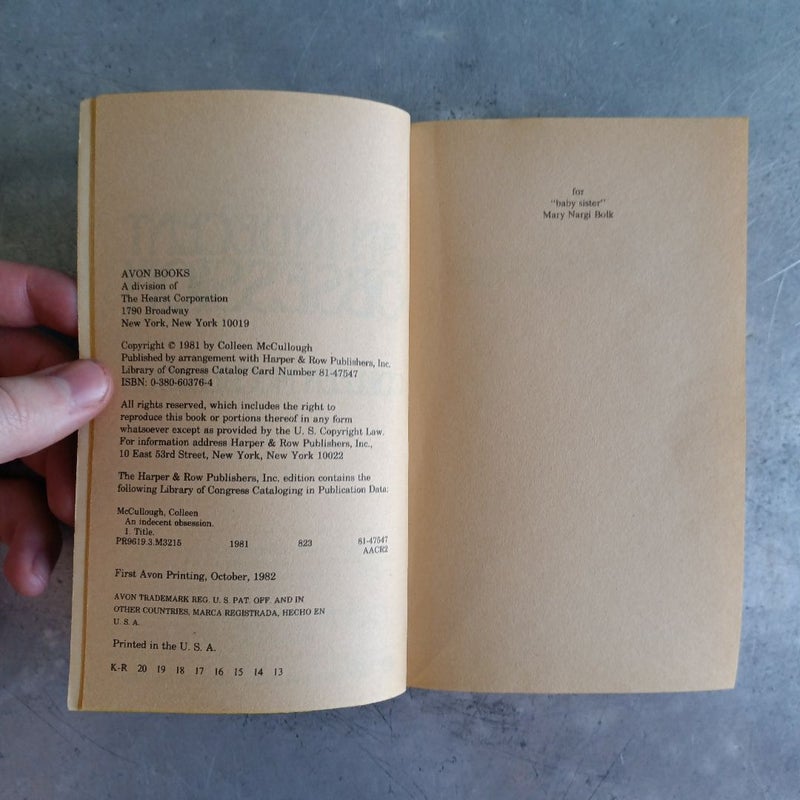 AVON BOOKS
A division of
The Hearst Corporation
1790 Broadway
New York, New York 10019
Copyright © 1981 by Colleen McCullough
Published by arrangement with Harper & Row Publishers, Inc.
Library of Congress Catalog Card Number 81-47547
ISBN: 0-380-60376-4
All rights reserved, which includes the right to
reproduce this book or portions thereof in any form
whatsoever except as provided by the U. S. Copyright Law.
For information address Harper & Row Publishers, Inc.,
10 East 53rd Street, New York, New York 10022
The Harper & Row Publishers, Inc. edition contains the
following Library of Congress Cataloging in Publication Data:
McCullough, Colleen
An indecent obsession.
I. Title.
PR9619.3.M3215 1981 823 81-47547
AACR2
First Avon Printing, October, 1982
AVON TRADEMARK REG. U. S. PAT. OFF. AND IN
OTHER COUNTRIES, MARCA REGISTRADA, HECHO EN
U. S. A.
Printed in the U. S. A.
K-R 20 19 18 17 16 15 14 13
for
"baby sister"
Mary Nargi Bolk